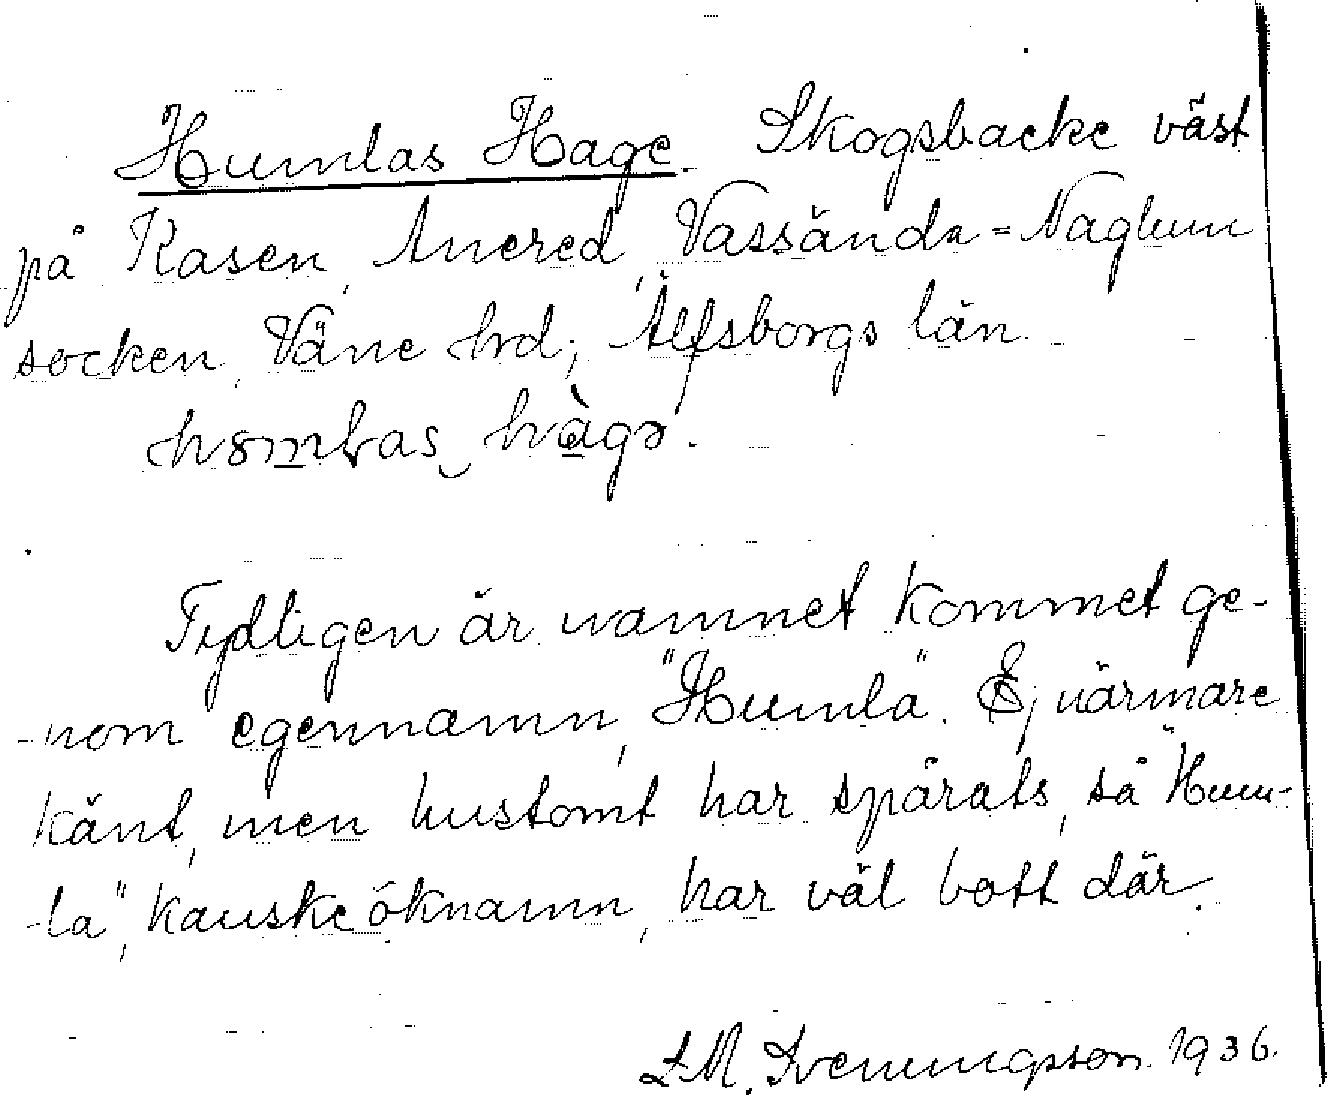 Humlas Hage. Skogsbacke väst
på Rasen, Anered, Vassända=Naglum
socken, Väne hrd, Älfsborgs län.
Tydligen är namnet kommet ge-
nom egennamn, "Humla". Ej närmare
känt, men hustomt har spårats, så "Hum-
la", kanske öknamn, har väl bott där.
L.M. Svenungsson. 1936.